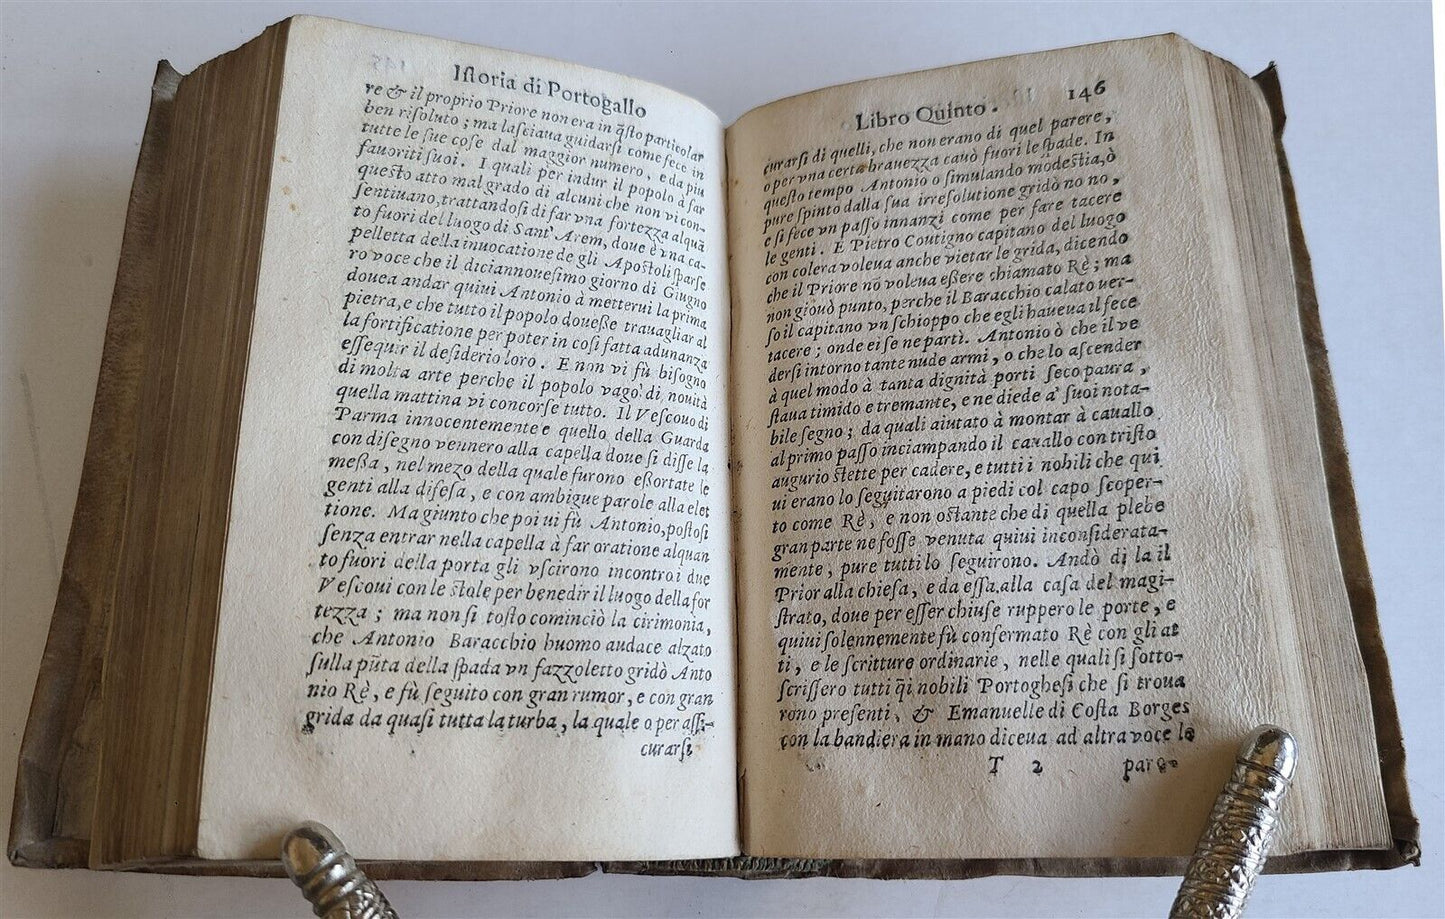 Iſtoria di Portogallo
re & il proprio Priore non era in q̃ſto particolar
ben riſoluto ; ma laſciaua guidarſi come fece in
tutte le ſue coſe dal maggior numero, e da piu
fauoriti ſuoi. I quali per indur il popolo à far
queſto atto mal grado di alcuni che non vi con-
ſentiuano, trattandoſi di far vna fortezza alquã
to fuori del luogo di Sant' Arem, doue è vna ca-
pelletta della inuocatione de gli Apoſtoli ſparſe
ro voce che il diciannoueſimo giorno di Giugno
douea andar quiui Antonio à metterui la prima
pietra, e che tutto il popolo doueße trauagliar al
la fortificatione per poter in coſi fatta adunanza
eſſequir il deſiderio loro. E non vi fù biſogno
di molta arte perche il popolo vago di nouità
quella mattina vi concorſe tutto. Il Veſcouo di
Parma innocentemente e quello della Guarda
con diſegno vennero alla capella doue ſi diſſe la
meßa, nel mezo della quale furono eßortate le
genti alla difeſa, e con ambigue parole alla elet
tione. Ma giunto che poi ui fù Antonio, poſtoſi
ſenza entrar nella capella à far oratione alquan
to fuori della porta gli vſcirono incontro i due
Veſcoui con le ſtole per benedir il luogo della for
tezza ; ma non ſi toſto cominciò la cirimonia,
che Antonio Baracchio huomo audace alzato
ſulla pũta della ſpada vn fazzoletto gridò Anto
nio Rè, e fù ſeguito con gran rumor, e con gran
grida da quaſi tutta la turba, la quale o per aſſi-
curarſi
Libro Quinto. 146
curarſi di quelli, che non erano di quel parere,
o per vna certa brauezza cauò fuori le ſpade. In
queſto tempo Antonio o ſimulando modeſtia, ò
pure ſpinto dalla ſua irreſolutione gridò no no,
e ſi fece vn paſſo innanzi come per fare tacere
le genti. E Pietro Coutigno capitano del luogo
con colera voleua anche vietar le grida, dicendo
che il Priore nõ voleua eßere chiamato Rè ; ma
non giouò punto, perche il Baracchio calato ver-
ſo il capitano vn ſchioppo che egli haueua il fece
tacere ; onde ei ſe ne partì. Antonio ò che il ve
derſi intorno tante nude armi, o che lo aſcender
à quel modo à tanta dignità porti ſeco paura,
ſtaua timido e tremante, e ne diede a' ſuoi nota-
bile ſegno ; da quali aiutato à montar à cauallo
al primo paſſo inciampando il cauallo con triſto
augurio ſtette per cadere, e tutti i nobili che qui
ui erano lo ſeguitarono a piedi col capo ſcoper-
to come Rè, e non oſtante che di quella plebe
gran parte ne foſſe venuta quiui inconſiderata-
mente, pure tutti lo ſeguirono. Andò di la il
Prior alla chieſa, e da eſſa alla caſa del magi-
ſtrato, doue per eſſer chiuſe ruppero le porte, e
quiui ſolennemente fù confermato Rè con gli at
ti, e le ſcritture ordinarie, nelle quali ſi ſotto-
ſcriſſero tutti q̃i nobili Portogheſi che ſi troua
rono preſenti, & Emanuelle di Coſta Borges
con la bandiera in mano diceua ad alta voce le
T 2 paro-